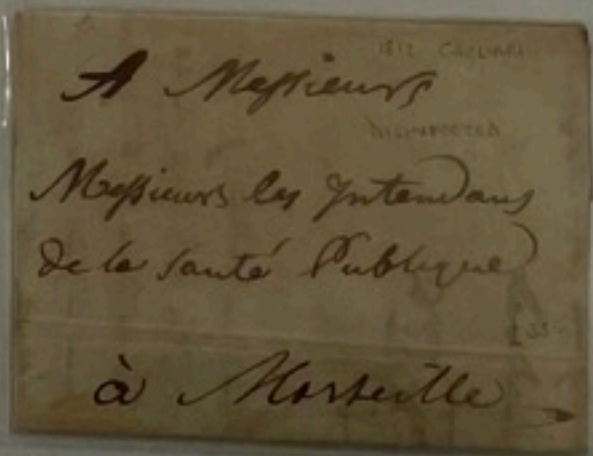 1812 CAGLIARI
A Messieurs
DISINFECTED
Messieurs les Intendans
de la Santé Publique
à Marseille